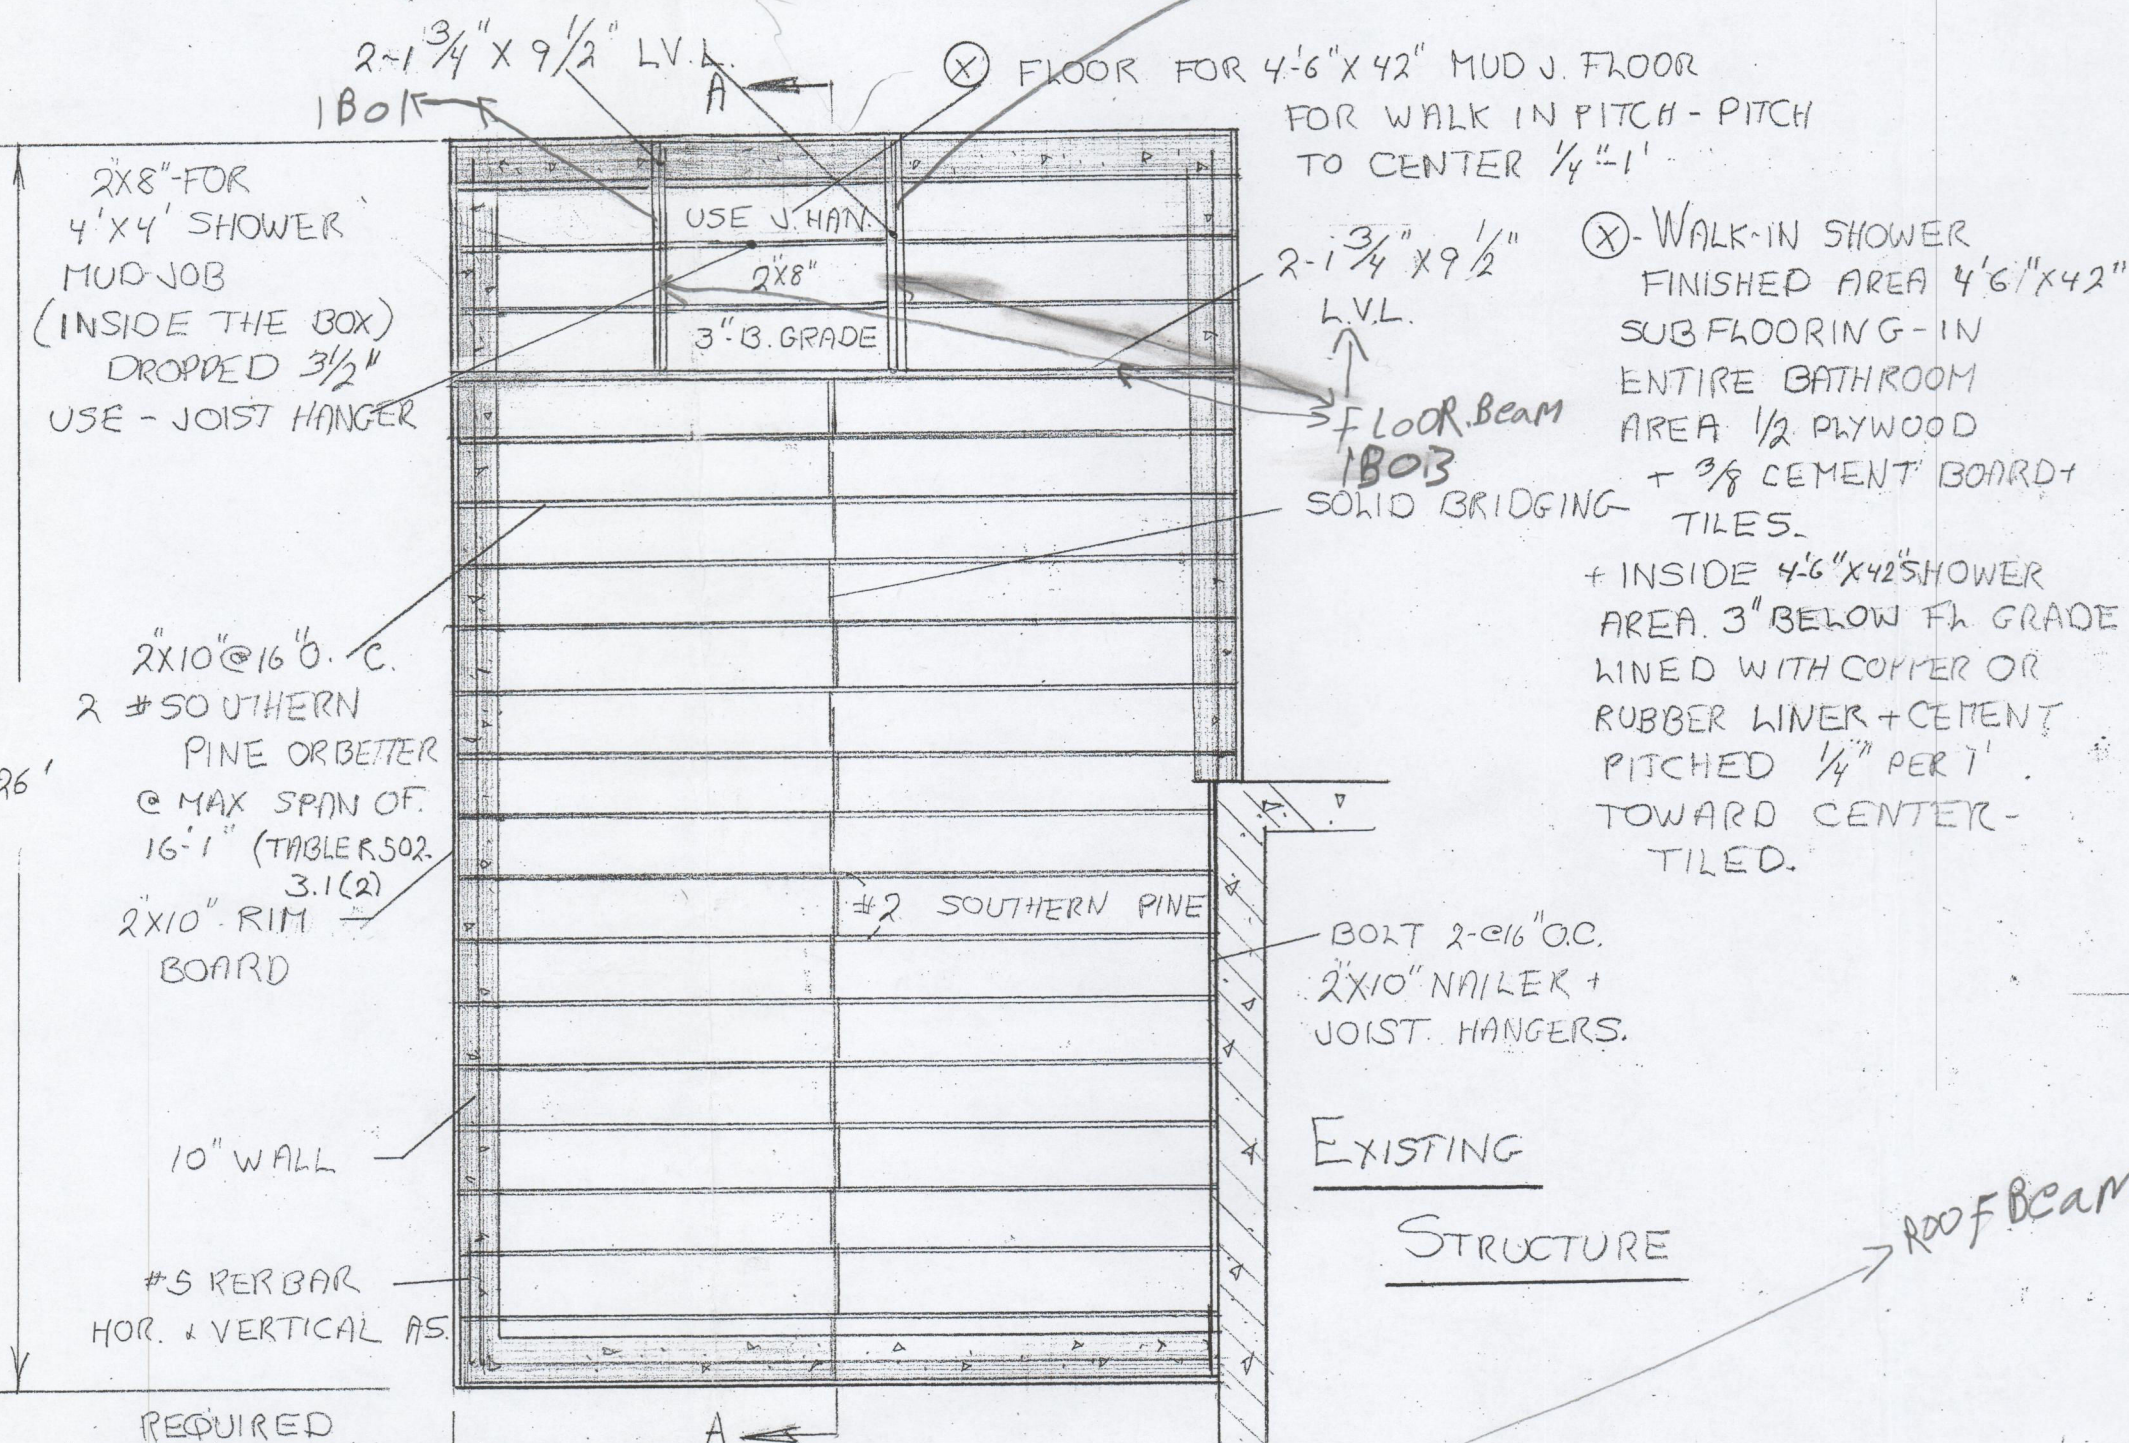 2-1 3/4" X 9 1/2" L.V.L.
A
Ⓧ FLOOR FOR 4'-6" X 42" MUD J. FLOOR
FOR WALK IN PITCH - PITCH
TO CENTER 1/4"-1'
2X8"-FOR
4'X4' SHOWER
MUD-JOB
(INSIDE THE BOX)
DROPPED 3 1/2"
USE - JOIST HANGER
USE J. HAN.
2"X8"
3"-B. GRADE
2-1 3/4" X 9 1/2"
L.V.L.
FLOOR.Beam
1B03
SOLID BRIDGING
Ⓧ- WALK-IN SHOWER
FINISHED AREA 4'6"X42"
SUBFLOORING-IN
ENTIRE BATHROOM
AREA 1/2 PLYWOOD
+ 3/8 CEMENT BOARD+
TILES.
+ INSIDE 4'-6"X42" SHOWER
AREA. 3" BELOW FL GRADE
LINED WITH COPPER OR
RUBBER LINER + CEMENT
PITCHED 1/4" PER 1'.
TOWARD CENTER-
TILED.
2"X10"@16"O.C.
2 #SOUTHERN
PINE OR BETTER
@ MAX SPAN OF.
16'-1" (TABLE R502.
3.1(2)
26'
2"X10" RIM
BOARD
#2 SOUTHERN PINE
BOLT 2-@16"O.C.
2"X10" NAILER +
JOIST. HANGERS.
10" WALL
EXISTING
STRUCTURE
ROOF Beam
#5 RERBAR
HOR. & VERTICAL AS.
REQUIRED
A